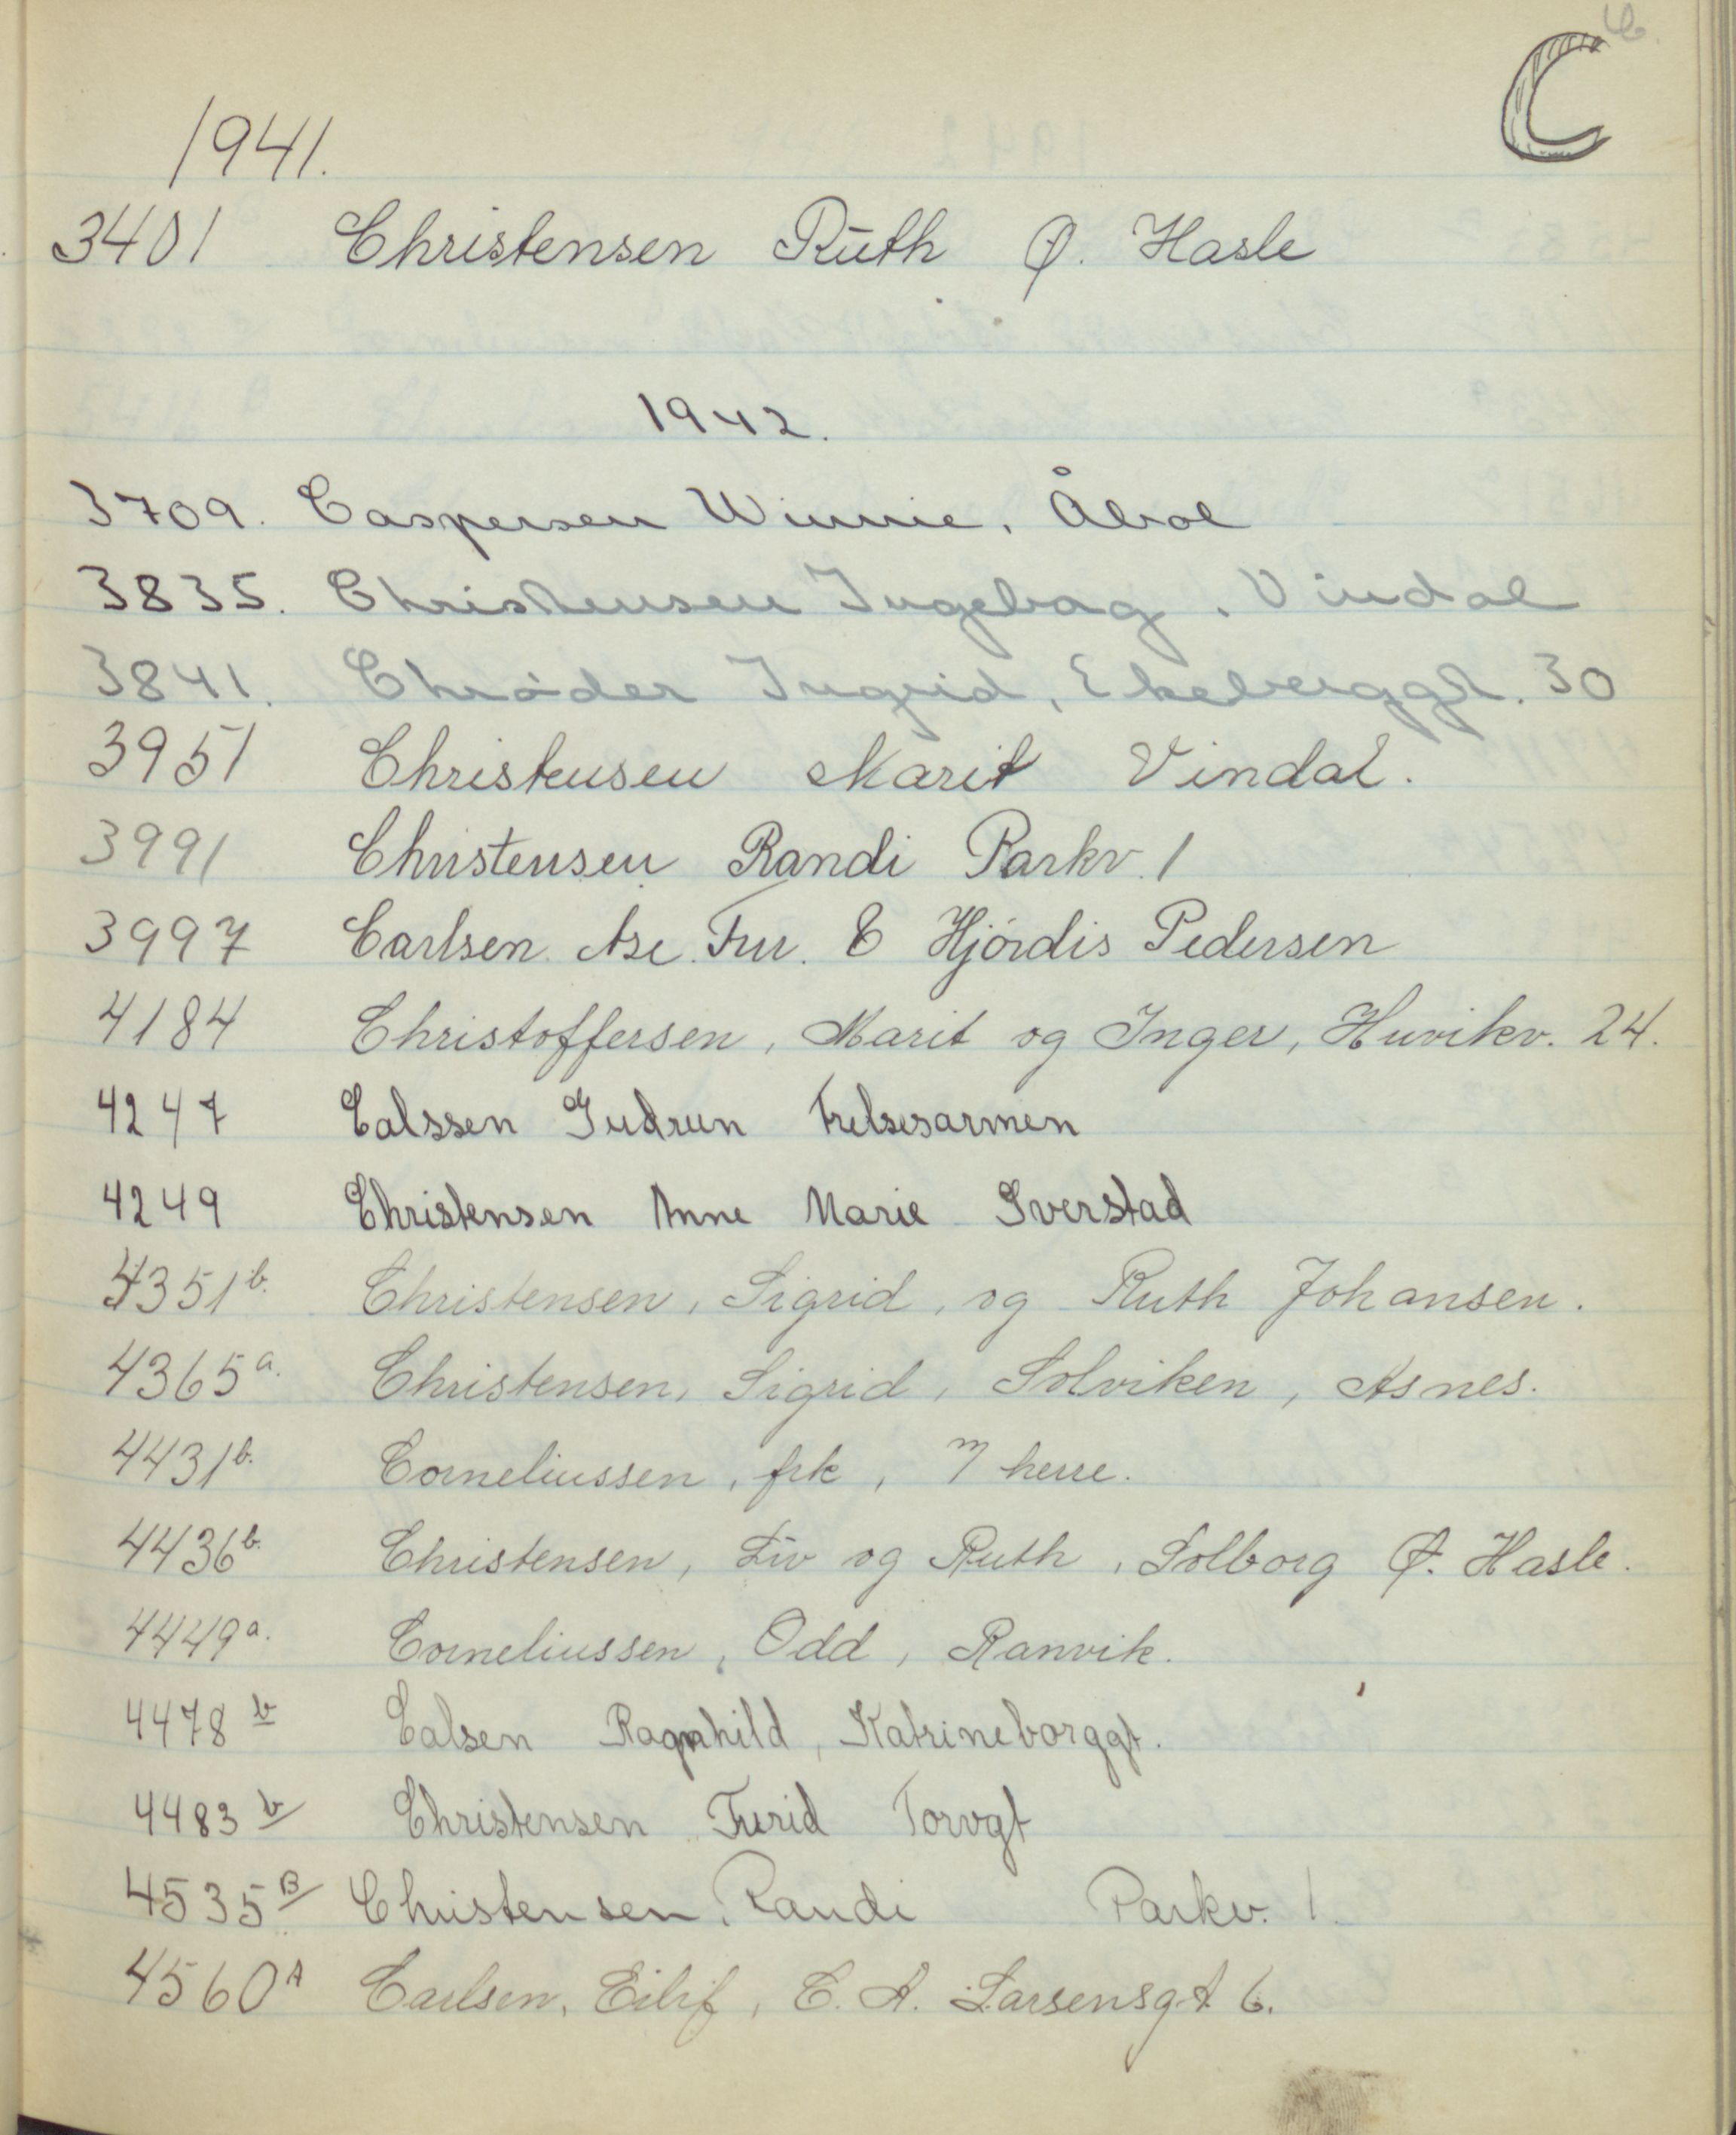 C
1941.
3401 Christensen Ruth Ø. Hasle
1942.
3709. Caspersen Winnie, Åbol
3835. Christensen Ingebog. Vindal
3841. Chrøder Ingrid, Ekeberggt. 30
3951 Christensen Marit Vindal.
3991 Christensen Randi Parkv. 1
3997 Carlsen Åse. Fru. & Hjördis Pedersen
4184 Christoffersen, Marit og Inger, Huvikv. 24.
4247 Calssen Gudrun Frelsesarmen
4249 Christensen Anne Marie Iverstad
4351 b. Christensen, Sigrid, og Ruth Johansen.
4365 a. Christensen, Sigrid, Solviken, Asnes.
4431 b. Corneliussen, frk, m/ herre.
4436 b. Christensen, Liv og Ruth, Solborg Ø. Hasle.
4449 a. Corneliussen, Odd, Ranvik.
4478 b Calsen Ragnhild, Katrineborggt.
4483 b Christensen Turid Torvgt
4535 B Christensen, Randi Parkv. 1.
4560 A Carlsen, Eilif, C. A. Larsensgt 6.